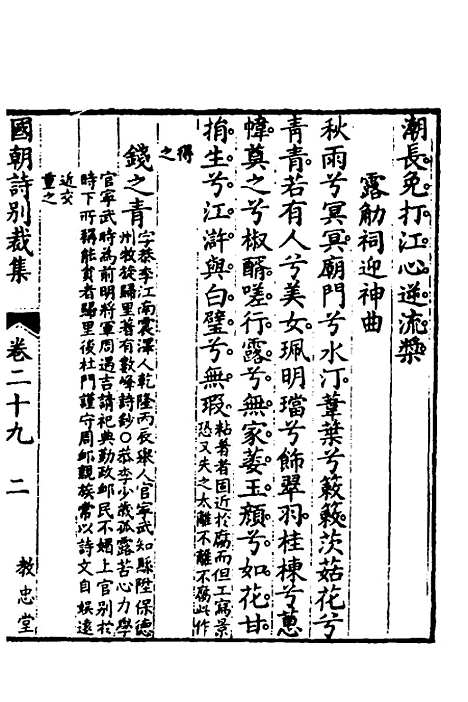 潮長免打江心逆流槳
露筋祠迎神曲
秋雨兮冥冥廟門兮水汀葦葉兮簌簌茨菇花兮
青青若有人兮美女珮明璫兮飾翠羽桂棟兮蕙
幃奠之兮椒醑嗟行露兮無家萎玉顏兮如花甘
捐生兮江滸與白璧兮無瑕粘著者固近於腐而但工寫景
恐又失之太離不離不腐此作
得之
錢之青字恭李江南震澤人乾隆丙辰舉人官寧武知縣陞保德
州教從歸里著有數峰詩鈔〇恭李少歲孤露苦心力學
官寧武時為前明將軍周遇吉請祀典勤政邮民不媚上官別於
時下所稱能貴者歸里後杜門謹守周邮親族常以詩文自娛遠
近交
重之
國朝詩別裁集
卷二十九
二
教忠堂